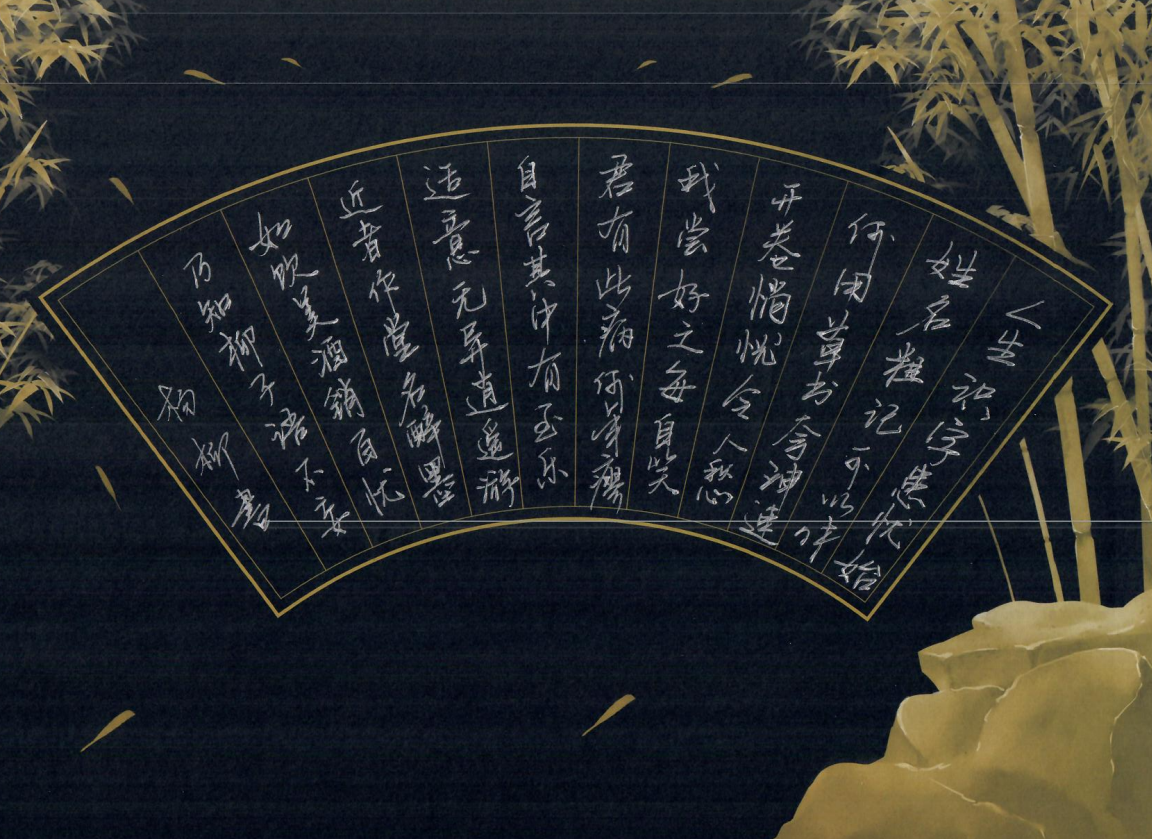 人生识字忧忧始
姓名粗记可以休
何用草书夸神速
开卷惝恍令人愁
我尝好之每自笑
君有此病何年瘳
自言其中有至乐
适意无异逍遥游
近者作堂名醉墨
如饮美酒销百忧
乃知柳子语不妄
杨柳书